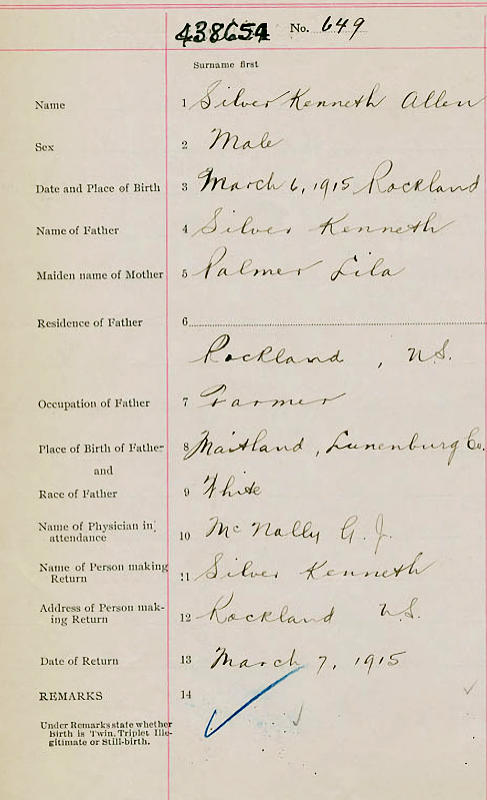 438654 No. 649
Surname first
Name 1 Silver Kenneth Allen
Sex 2 Male
Date and Place of Birth 3 March 6, 1915 Rockland
Name of Father 4 Silver Kenneth
Maiden name of Mother 5 Palmer Lila
Residence of Father 6
Rockland, N.S.
Occupation of Father 7 Farmer
Place of Birth of Father 8 Maitland, Lunenburg Co.
and
Race of Father 9 White
Name of Physician in attendance 10 McNally G. J.
Name of Person making Return 11 Silver Kenneth
Address of Person mak-
ing Return 12 Rockland N.S.
Date of Return 13 March 7, 1915
REMARKS 14
Under Remarks state whether
Birth is Twin, Triplet Ille-
gitimate or Still-birth.